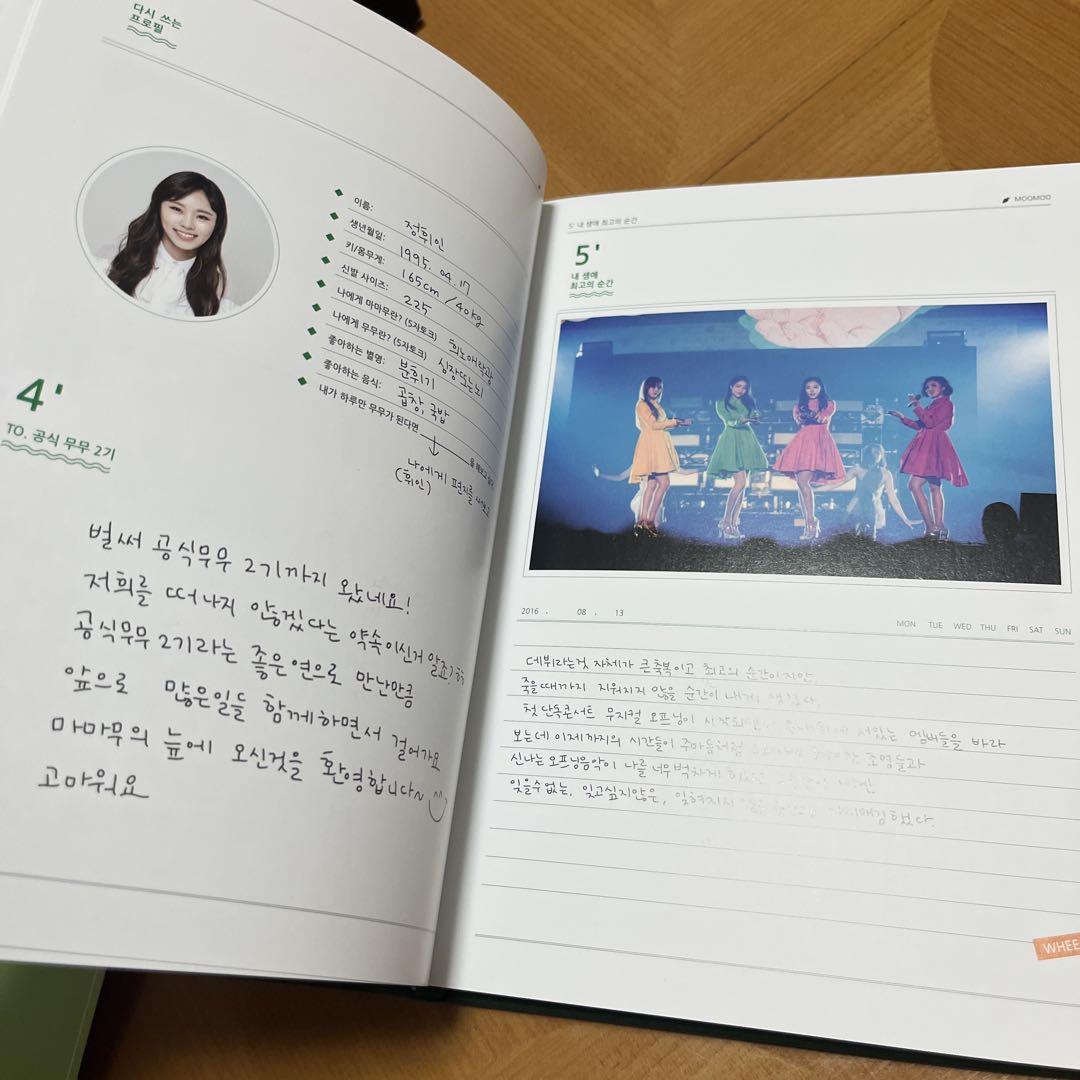 다시 쓰는
프로필
이름: 정휘인
생년월일: 1995. 04. 17
키/몸무게: 165cm / 40kg
신발 사이즈: 225
나에게 마마무란? (5자토크) 희노애락광
나에게 무무란? (5자토크) 심장또는뇌
좋아하는 별명: 분휘기
좋아하는 음식: 곱창, 국밥
내가 하루만 무무가 된다면
나에게 편지를
(휘인)
4'
TO. 공식 무무 2기
벌써 공식무무 2기까지 왔네요!
저희를 떠나지 않겠다는 약속이신거 알죠?
공식무무 2기라는 좋은연으로 만난만큼
앞으로 많은일들 함께하면서 걸어가요
마마무의 늪에 오신것을 환영합니다~
고마워요
MOOMOO
5' 내 생애 최고의 순간
5'
내 생애
최고의 순간
2016 . 08 . 13
MON TUE WED THU FRI SAT SUN
데뷔라는것 자체가 큰축복이고 최고의 순간이지만
죽을때까지 지워지지 않을 순간이 내게
첫 단독콘서트 뮤지컬 오프닝이 서있는 멤버들을 바라
보는데 이제까지의 시간들이 주마등처럼 조명들과
신나는 오프닝음악이 나를 너무 벅차게
잊을수없는, 잊고싶지않은, 잊혀지지 했다.
WHEE